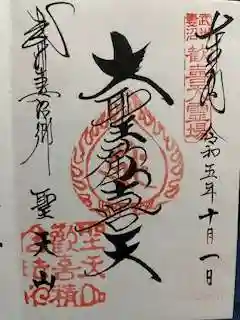 奉拝
武州妻沼
歓喜天霊場
令和五年十月一日
大聖歓喜天
武州妻沼郷
聖天山
聖天山
歓喜院